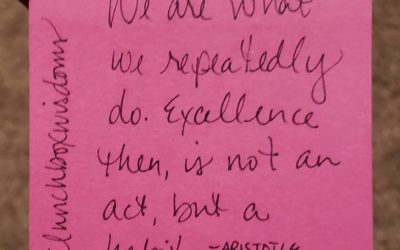 We are what
we repeatedly
do. Excellence
then, is not an
act, but a
habit. -ARISTOTLE
lunchboxwisdoms